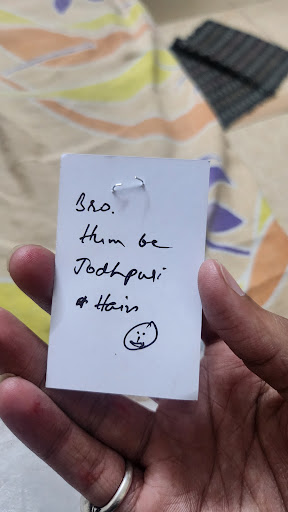 Bro.
Hum be
Jodhpuri
Hain